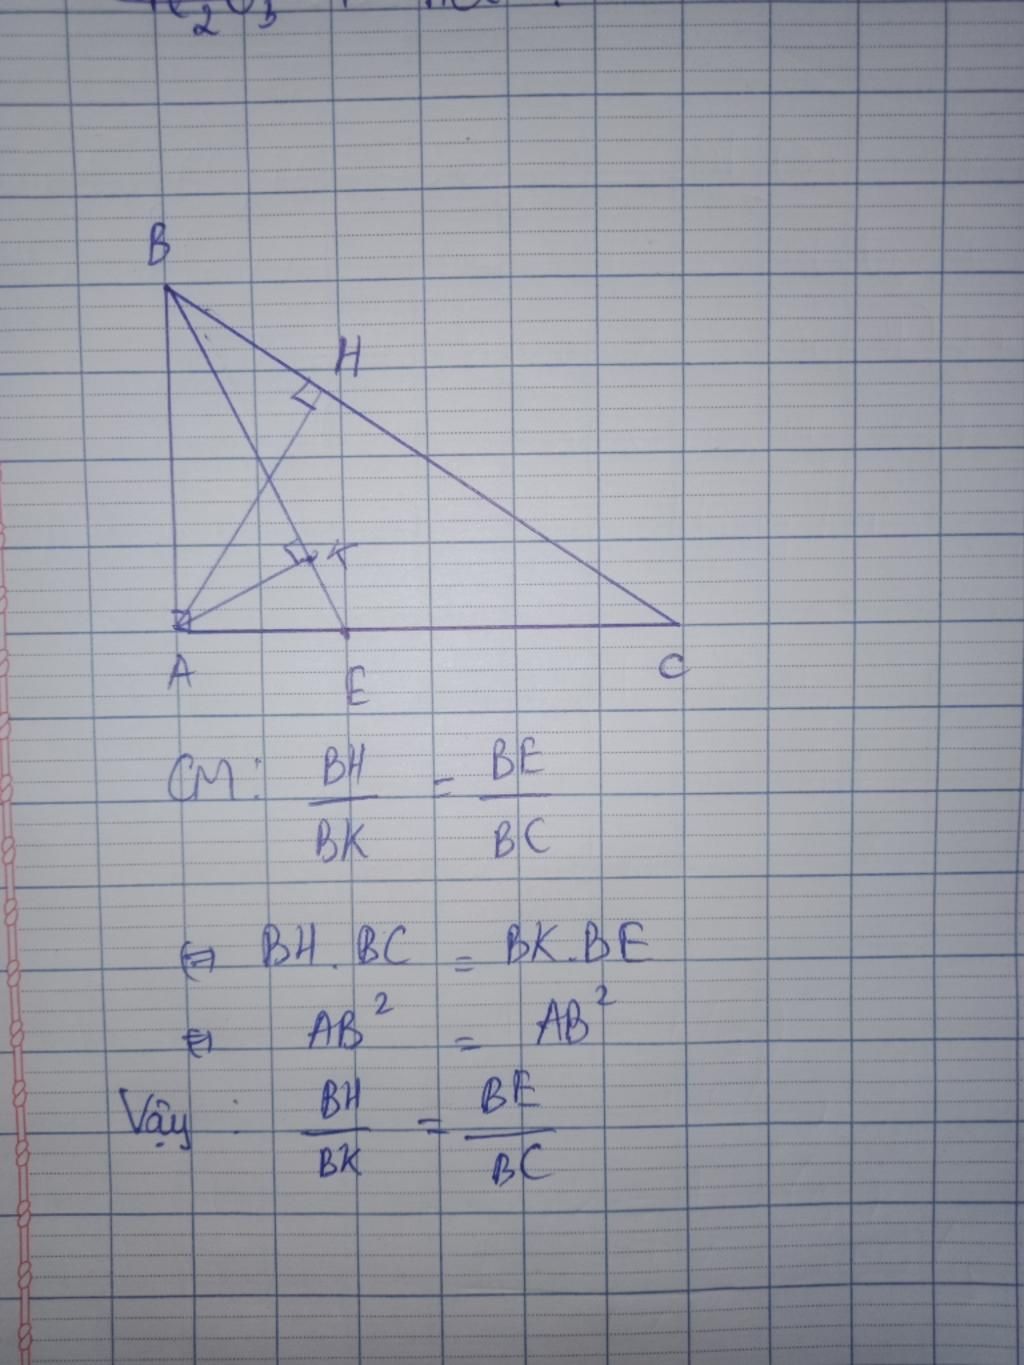 B
H
K
A E C
CM: BH/BK = BE/BC
⇔ BH . BC = BK . BE
⇔ AB² = AB²
Vậy : BH/BK = BE/BC